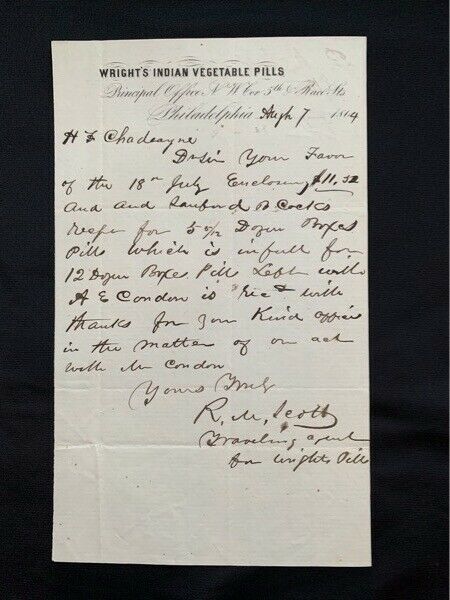 WRIGHT'S INDIAN VEGETABLE PILLS
Principal Office N W Cor 5th & Race Sts
Philadelphia 7 18
H Chadeayne
Dr Sir Your Favor
of the 18th July Enclosing $11.52
and and Sanford B Cocks
recpt for 5 1/2 Dozen Boxes
Pills which is in full for
12 Dozen Boxes Pills Left with
A E Condon is Rec'd with
thanks for your Kind offices
in the matter of our act
with Mr Condon
Yours Truly
R. M. Scott
Traveling agent
for Wrights Pills